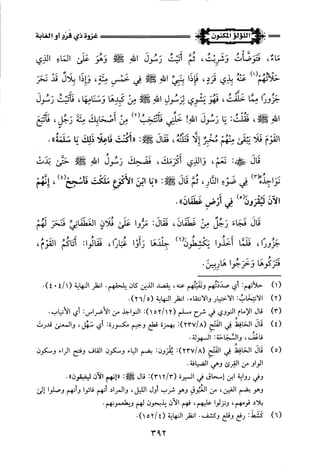 غزوة ذي قَرَدٍ أو الغابة
اللؤلؤ المكنون
مَاءٌ، فَتَوَضَّأْتُ وَشَرِبْتُ، ثُمَّ أَتَيْتُ رَسُولَ اللهِ ﷺ وَهُوَ عَلَى المَاءِ الذِي
حَلَّأْتُهُمْ(١) عَنْهُ بِذِي قَرَدٍ، فَإِذَا بِنَبِيِّ اللهِ ﷺ فِي خَمْسِ مِئَةٍ، وَإِذَا بِلَالٌ قَدْ نَحَرَ
جَزُورًا مِمَّا خَلَّفْتُ، فَهُوَ يَشْوِي لِرَسُولِ اللهِ ﷺ مِنْ كَبِدِهَا وَسَنَامِهَا، فَأَتَيْتُ رَسُولَ
اللهِ ﷺ، فَقُلْتُ: يَا رَسُولَ اللهِ! خَلِّنِي فَأَنْتَخِبُ(٢) مِنْ أَصْحَابِكَ مِئَةَ رَجُلٍ، فَأَتَّبِعُ
القَوْمَ فَلَا يَبْقَى مِنْهُمْ مُخْبِرٌ إِلَّا قَتَلْتُهُ، فَقَالَ ﷺ: «أَكُنْتَ فَاعِلًا ذَلِكَ يَا سَلَمَةُ».
قَالَ: نَعَمْ، وَالذِي أَكْرَمَكَ، فَضَحِكَ رَسُولُ اللهِ ﷺ حَتَّى بَدَتْ
نَوَاجِذُهُ(٣) فِي ضَوْءِ النَّارِ، ثُمَّ قَالَ ﷺ: «يَا ابْنَ الأَكْوَعِ مَلَكْتَ فَأَسْجِحْ(٤)، إِنَّهُمْ
الآنَ لَيُقْرَوْنَ(٥) فِي أَرْضِ غَطَفَانَ».
قَالَ فَجَاءَ رَجُلٌ مِنْ غَطَفَانَ، فَقَالَ: مَرُّوا عَلَى فُلَانٍ الغَطَفَانِيِّ فَنَحَرَ لَهُمْ
جَزُورًا، فَلَمَّا أَخَذُوا يَكْشِطُونَ(٦) جِلْدَهَا رَأَوْا غُبَارًا، فَقَالُوا: أَتَاكُمُ القَوْمُ،
فَتَرَكُوهَا وَخَرَجُوا هَارِبِينَ.
(١) حلأتهم: أي صددتهم ونفيتهم عنه، يقصد الذين كان يلحقهم. انظر النهاية (٤٠٤/١).
(٢) الانتخاب: الاختيار والانتقاء. انظر النهاية (٢٦/٥).
(٣) قال الإمام النووي في شرح مسلم (١٥٢/١٢): النواجذ من الأضراس: أي الأنياب.
(٤) قَالَ الحَافِظُ فِي الفَتْحِ (٢٣٧/٨): بهمزة قطع وجيم مكسورة: أي سَهِّل، والمعنى قدرتَ
فاعْفُ، والسَّجَاحَة: السهولة.
(٥) قَالَ الحَافِظُ فِي الفَتْحِ (٢٣٧/٨): يُقْرَون: بضم الياء وسكون القاف وفتح الراء وسكون
الواو من القِرَى وهي الضيافة.
وفي رواية ابن إسحاق في السيرة (٣١٢/٣): قال ﷺ: «إنهم الآن ليغبقون».
وهو بضم الغين، من الغُبُوق وهو شرب أول الليل، والمراد أنهم فاتوا وأنهم وصلوا إلى
بلاد قومهم، ونزلوا عليهم، فهم الآن يذبحون لهم ويطعمونهم.
(٦) كَشَطَ: رفع وقلع وكشف. انظر النهاية (١٥٢/٤).
٣٩٢